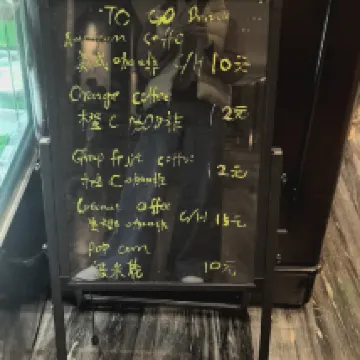 TO GO Drink
American coffe
美式咖啡 C/H 10元
Orange coffee
橙C咖啡 12元
Grap fruit coffee
柚C咖啡 12元
Coconut coffee
生椰 C/H 15元
Pop corn
爆米花 10元